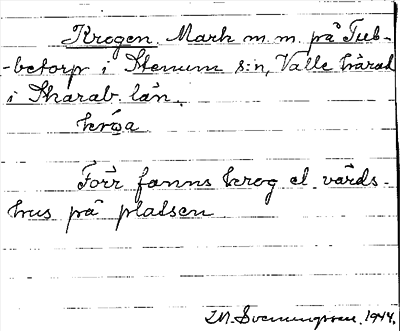 Krogen. Mark m. m. på Tub-
-betorp i Stenum s:n, Valle härad
i Skarab. län.
Förr fanns krog el. värds-
hus på platsen
M. Svenungsson. 1944.